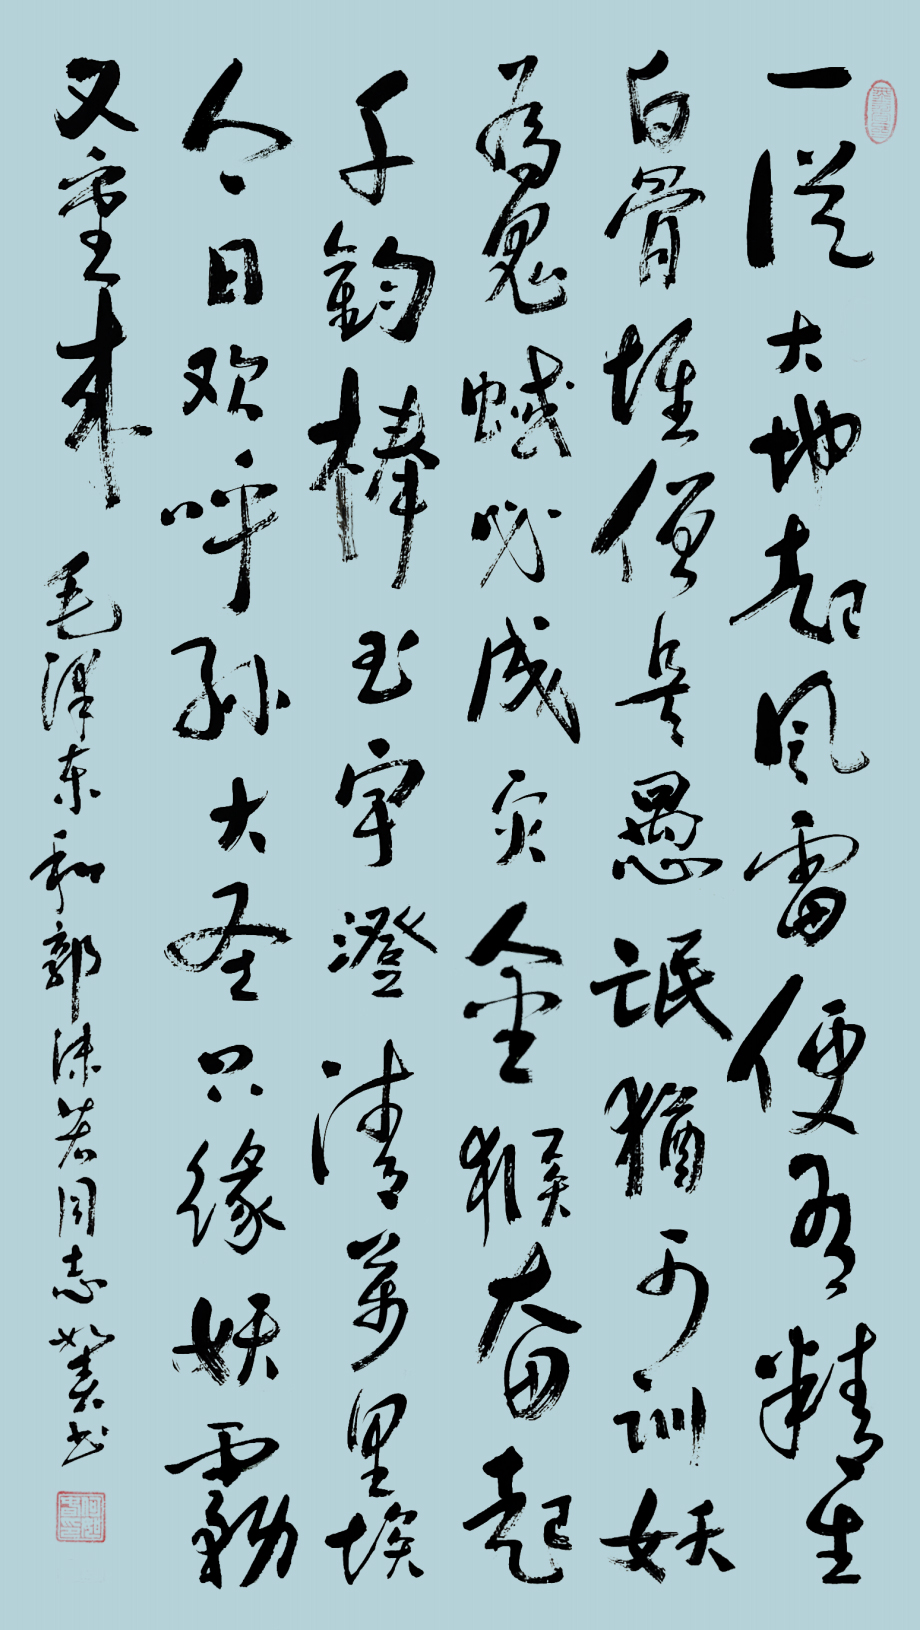 一從大地起风雷便有精生
白骨堆僧是愚氓猶可训妖
為鬼蜮必成灾金猴奋起
千鈞棒玉宇澄清萬里埃
今日欢呼孙大圣只缘妖霧
又重来
毛泽东和郭沫若同志 书